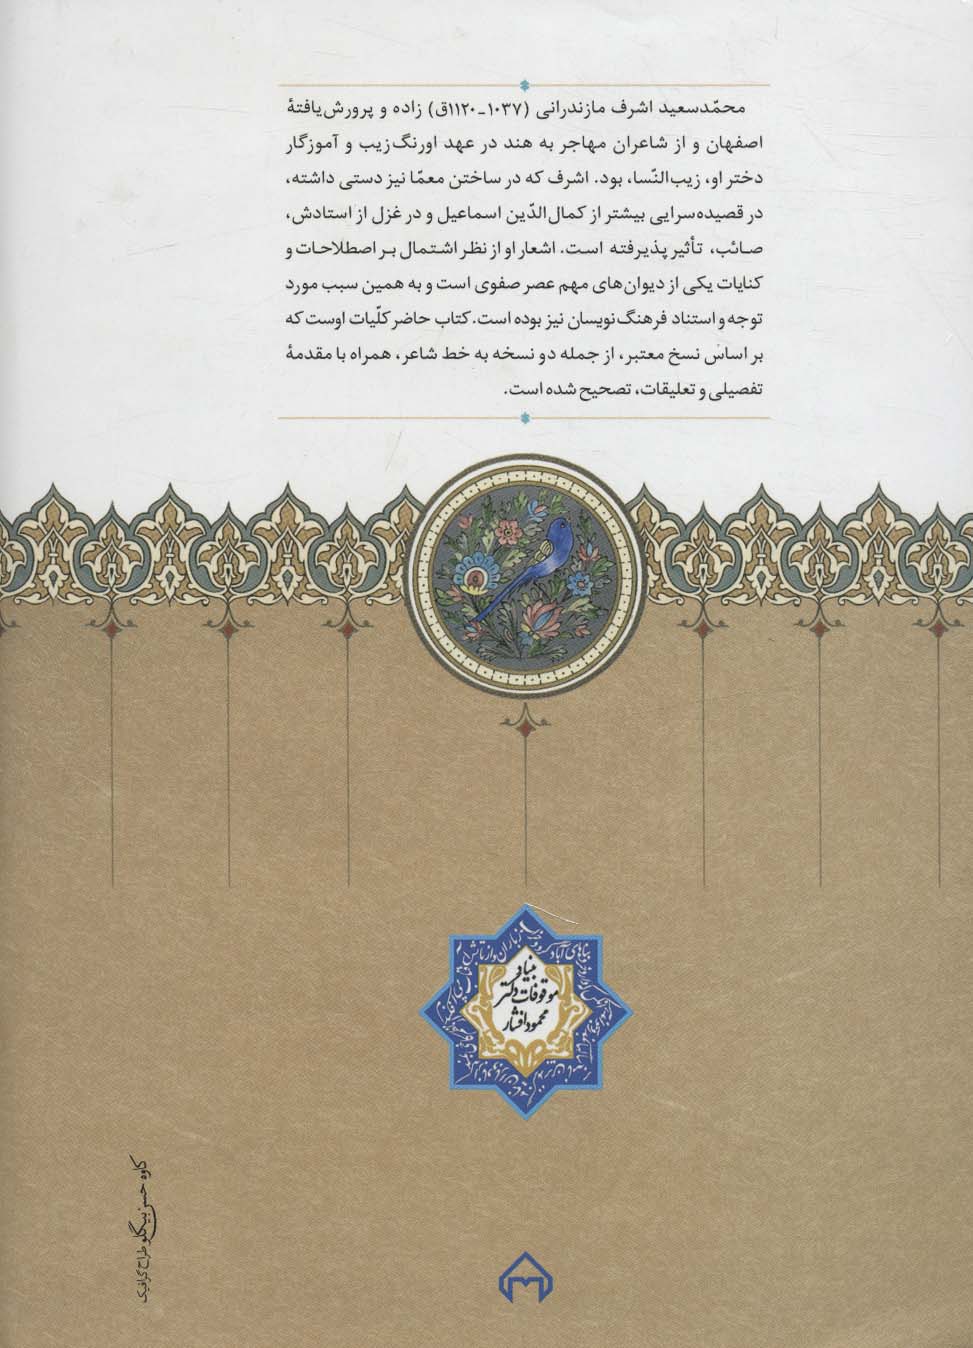 محمّدسعید اشرف مازندرانی (۱۰۳۷-۱۱۲۰ق) زاده و پرورش‌یافتهٔ
اصفهان و از شاعران مهاجر به هند در عهد اورنگ‌زیب و آموزگار
دختر او، زیب‌النّسا، بود. اشرف که در ساختن معمّا نیز دستی داشته،
در قصیده‌سرایی بیشتر از کمال‌الدّین اسماعیل و در غزل از استادش،
صائب، تأثیر پذیرفته است. اشعار او از نظر اشتمال بر اصطلاحات و
کنایات یکی از دیوان‌های مهم عصر صفوی است و به همین سبب مورد
توجه و استناد فرهنگ‌نویسان نیز بوده است. کتاب حاضر کلّیات اوست که
بر اساس نسخ معتبر، از جمله دو نسخه به خط شاعر، همراه با مقدمهٔ
تفصیلی و تعلیقات، تصحیح شده است.
بنیاد
موقوفات دکتر
محمود افشار
کاوه حسن‌بیگلو طراح گرافیک